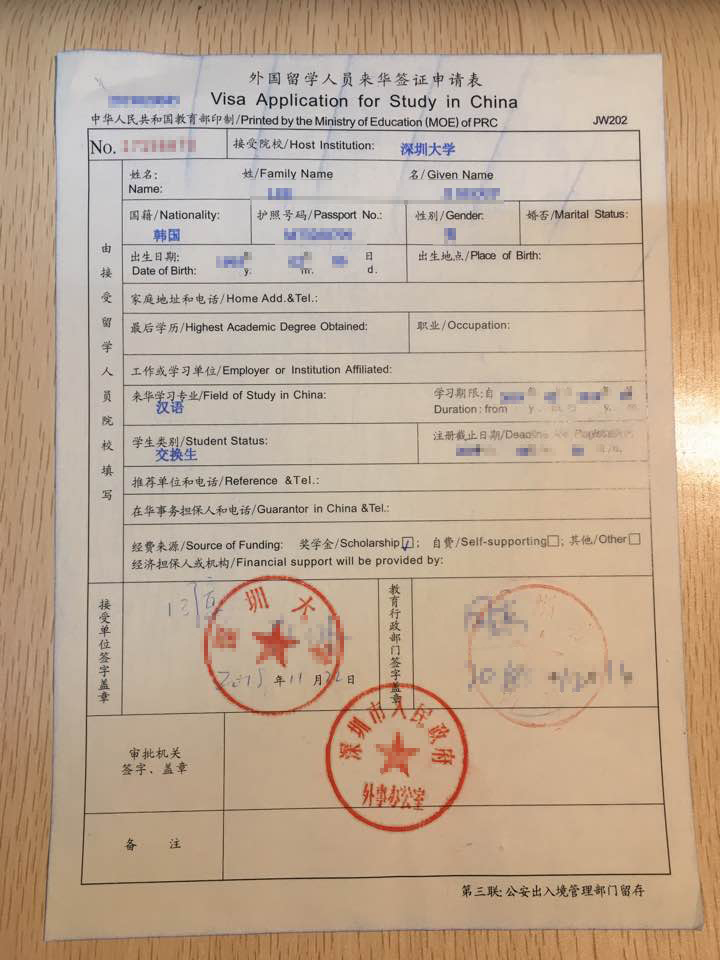 外国留学人员来华签证申请表
Visa Application for Study in China
中华人民共和国教育部印制/Printed by the Ministry of Education (MOE) of PRC
JW202
No.
接受院校/Host Institution: 深圳大学
由接受留学人员院校填写
姓名: 姓/Family Name 名/Given Name
Name:
国籍/Nationality: 护照号码/Passport No.: 性别/Gender: 婚否/Marital Status:
韩国
出生日期: 日 出生地点/Place of Birth:
Date of Birth: y. m. d.
家庭地址和电话/Home Add.&Tel.:
最后学历/Highest Academic Degree Obtained: 职业/Occupation:
工作或学习单位/Employer or Institution Affiliated:
来华学习专业/Field of Study in China: 学习期限:自
汉语 Duration: from y. y. m.
学生类别/Student Status: 注册截止日期/Deadline
交换生
推荐单位和电话/Reference &Tel.:
在华事务担保人和电话/Guarantor in China &Tel.:
经费来源/Source of Funding: 奖学金/Scholarship☑; 自费/Self-supporting□; 其他/Other□
经济担保人或机构/Financial support will be provided by:
接受单位签字盖章
圳大
年11月22日
教育行政部门签字盖章
深圳市人民政府
外事办公室
审批机关
签字、盖章
备 注
第三联:公安出入境管理部门留存